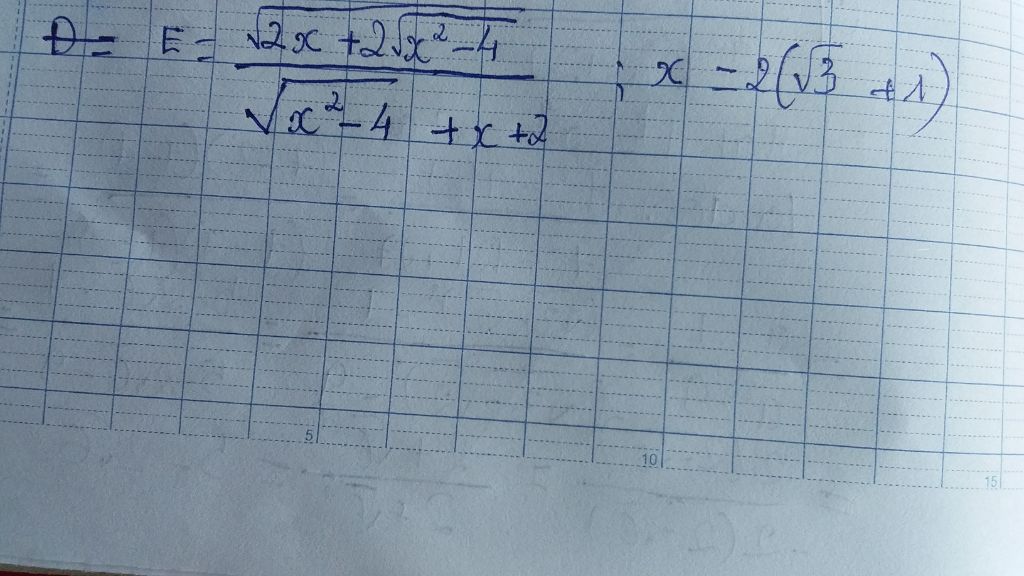 D = E = \frac{\sqrt{2x + 2\sqrt{x^2 - 4}}}{\sqrt{x^2 - 4} + x + 2} ; x = 2(\sqrt{3} + 1)
5
10
15